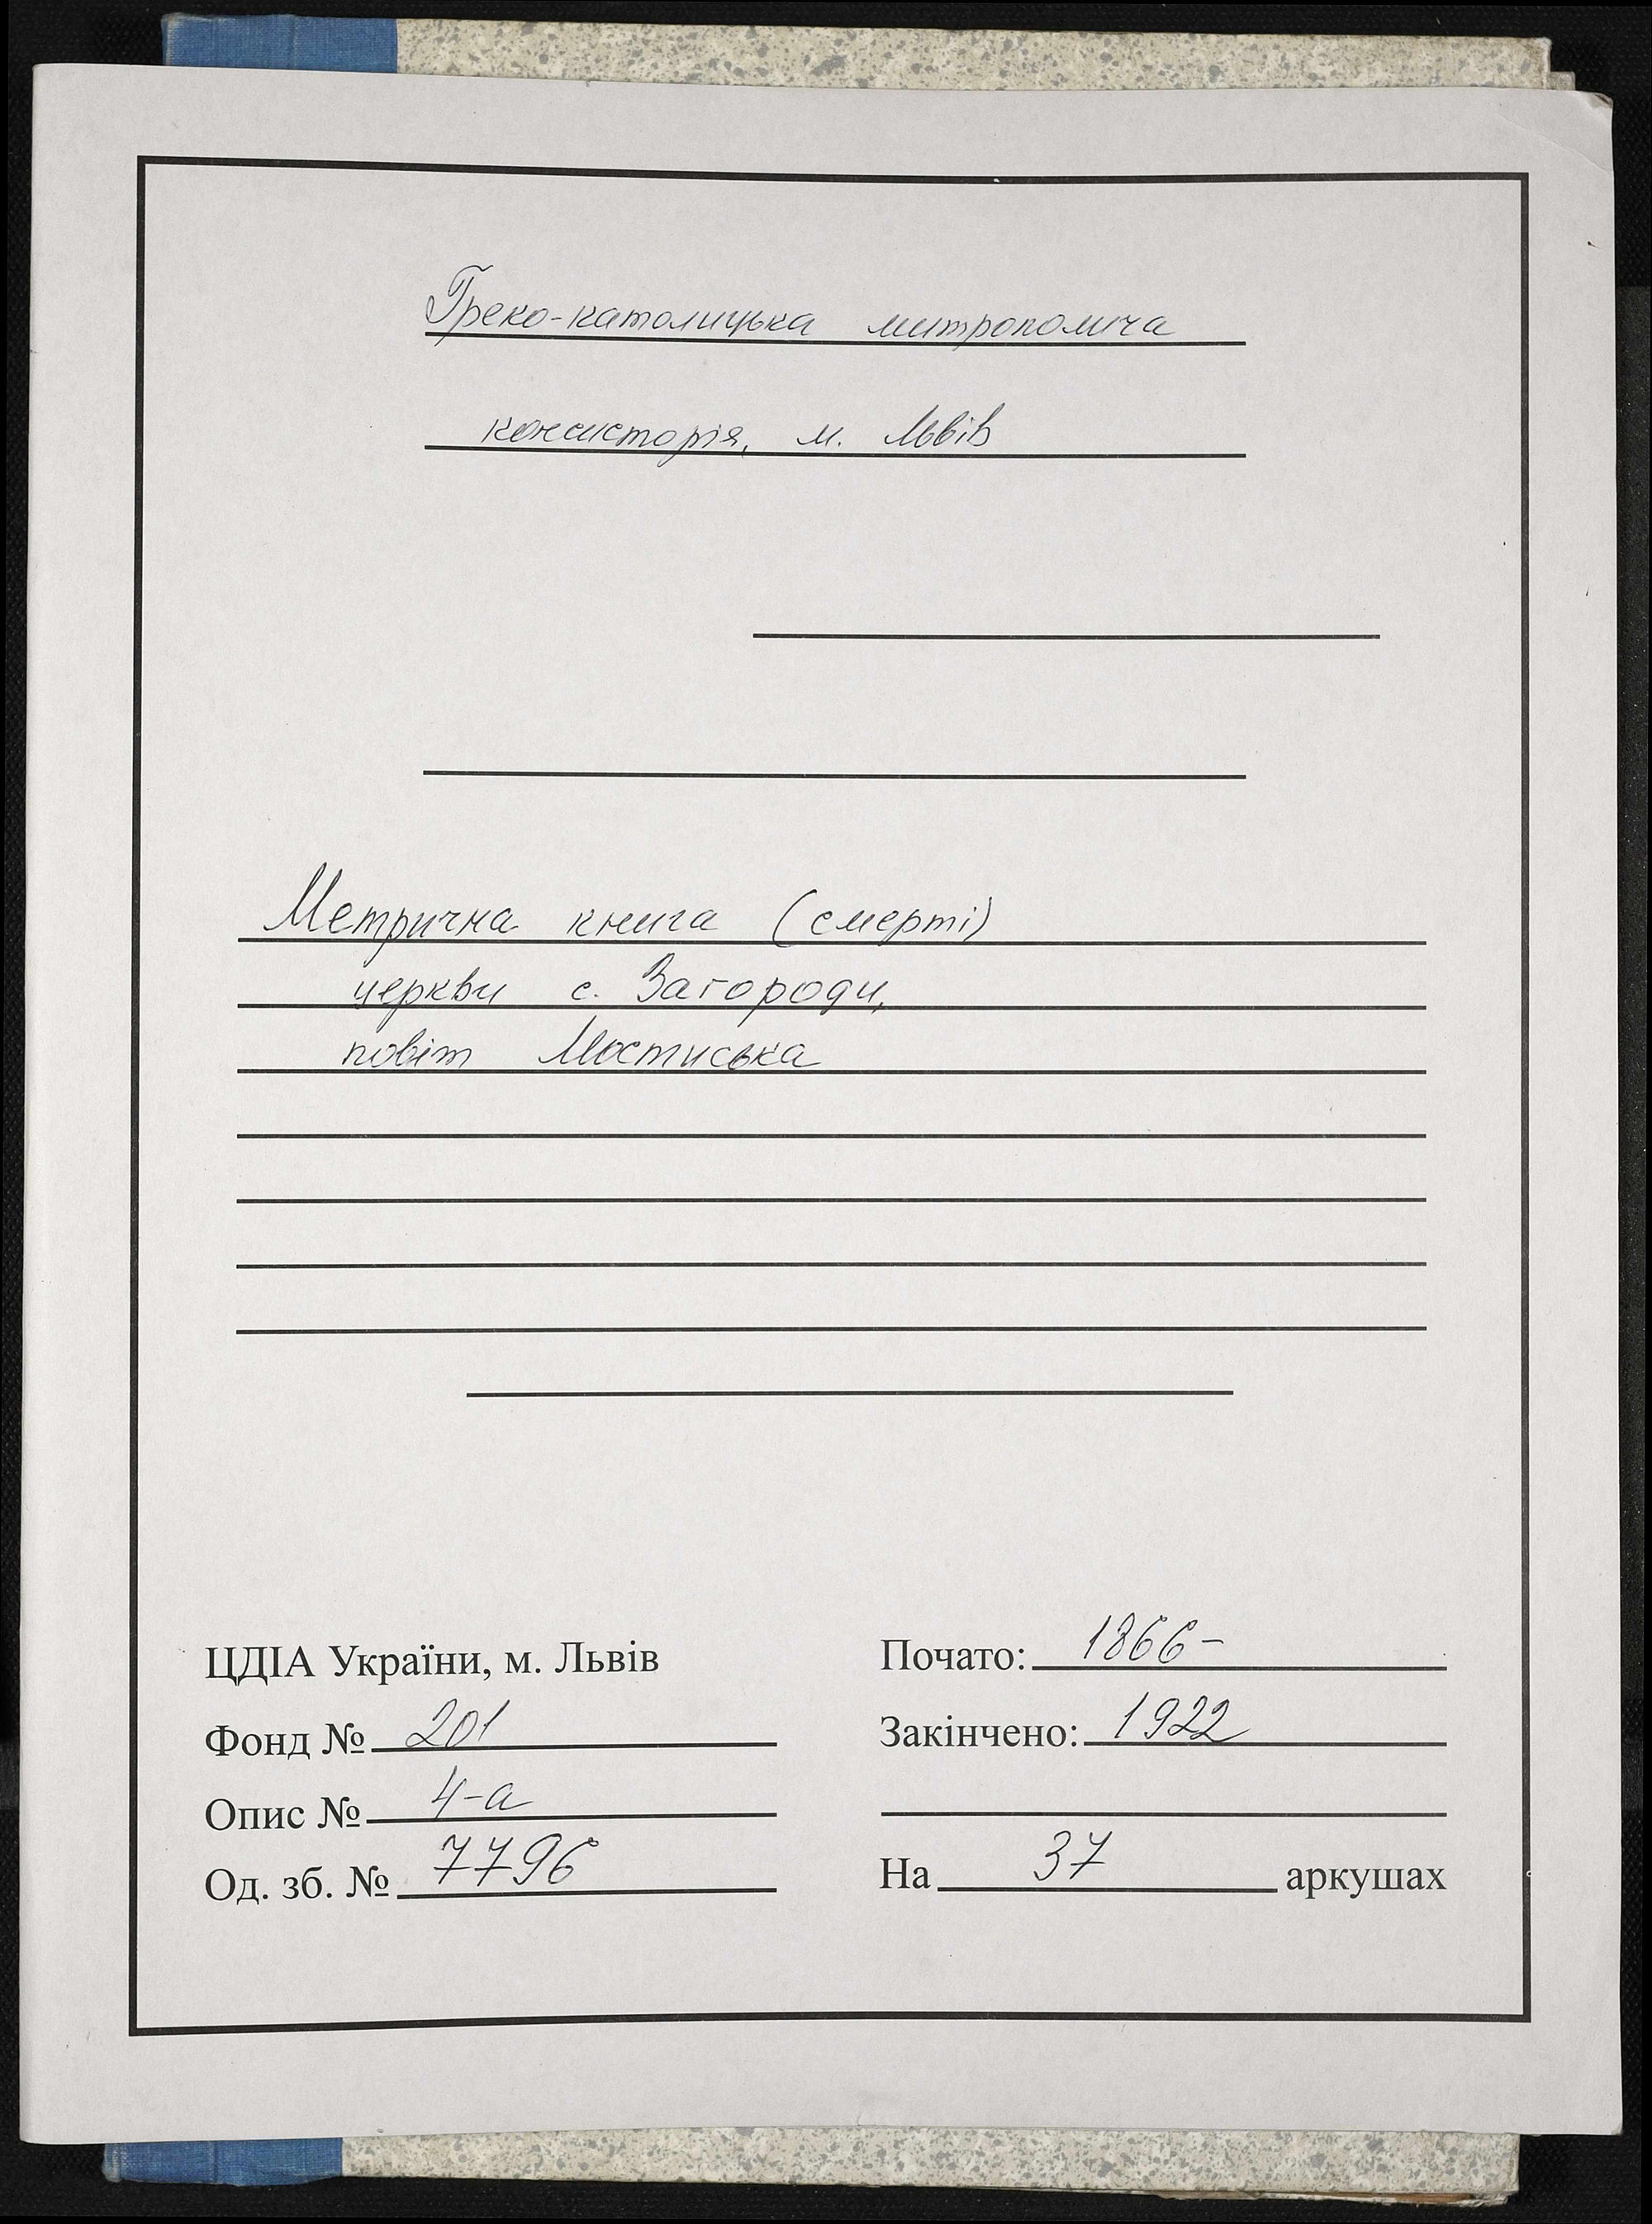 Греко-католицька митрополича
консисторія, м. Львів
Метрична книга (смерті)
церкви с. Загороди,
повіт Мостиська
ЦДІА України, м. Львів
Фонд № 201
Опис № 4-а
Од. зб. № 7796
Почато: 1866-
Закінчено: 1922
На 37 аркушах